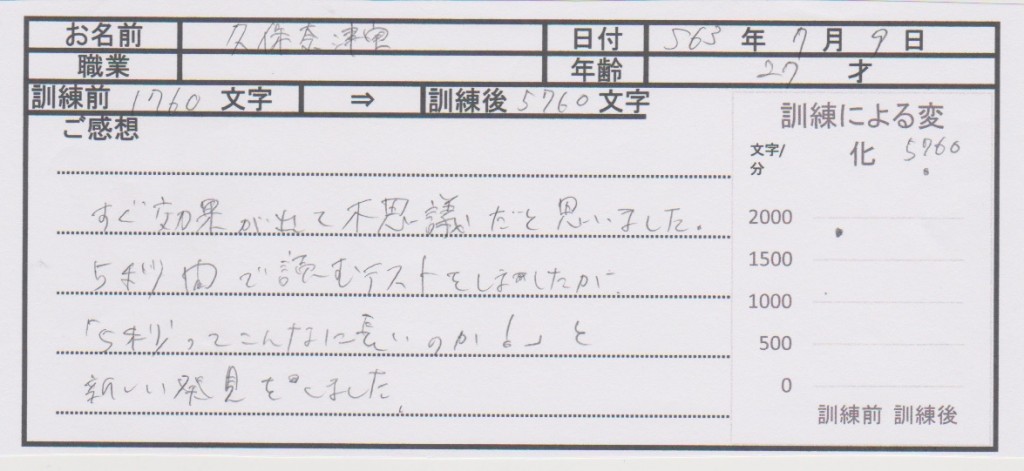 お名前 久保奈津実 日付 S63 年 7 月 9 日
職業 年齢 27 才
訓練前 1760 文字 ⇒ 訓練後 5760 文字
ご感想
すぐ効果が出て不思議だと思いました。
5秒間で読むテストをしましたが、
「5秒ってこんなに長いのか!」と
新しい発見をしました。
訓練による変
化 5760
文字/
分
2000
1500
1000
500
0
訓練前 訓練後